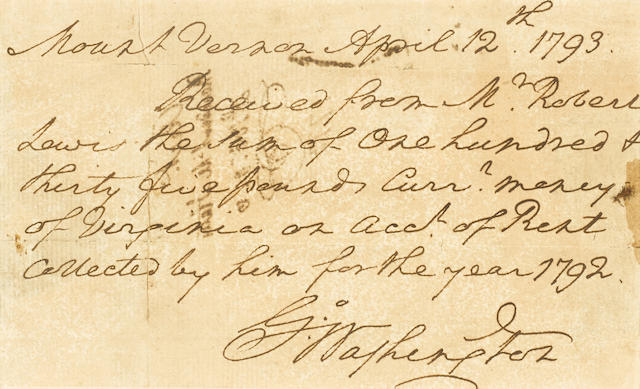 Mount Vernon April 12th. 1793.
Received from Mr. Robert
Lewis the sum of One hundred &
thirty five pounds Curr.y money
of Virginia on acct. of Rent
Collected by him for the year 1792.
Go: Washington